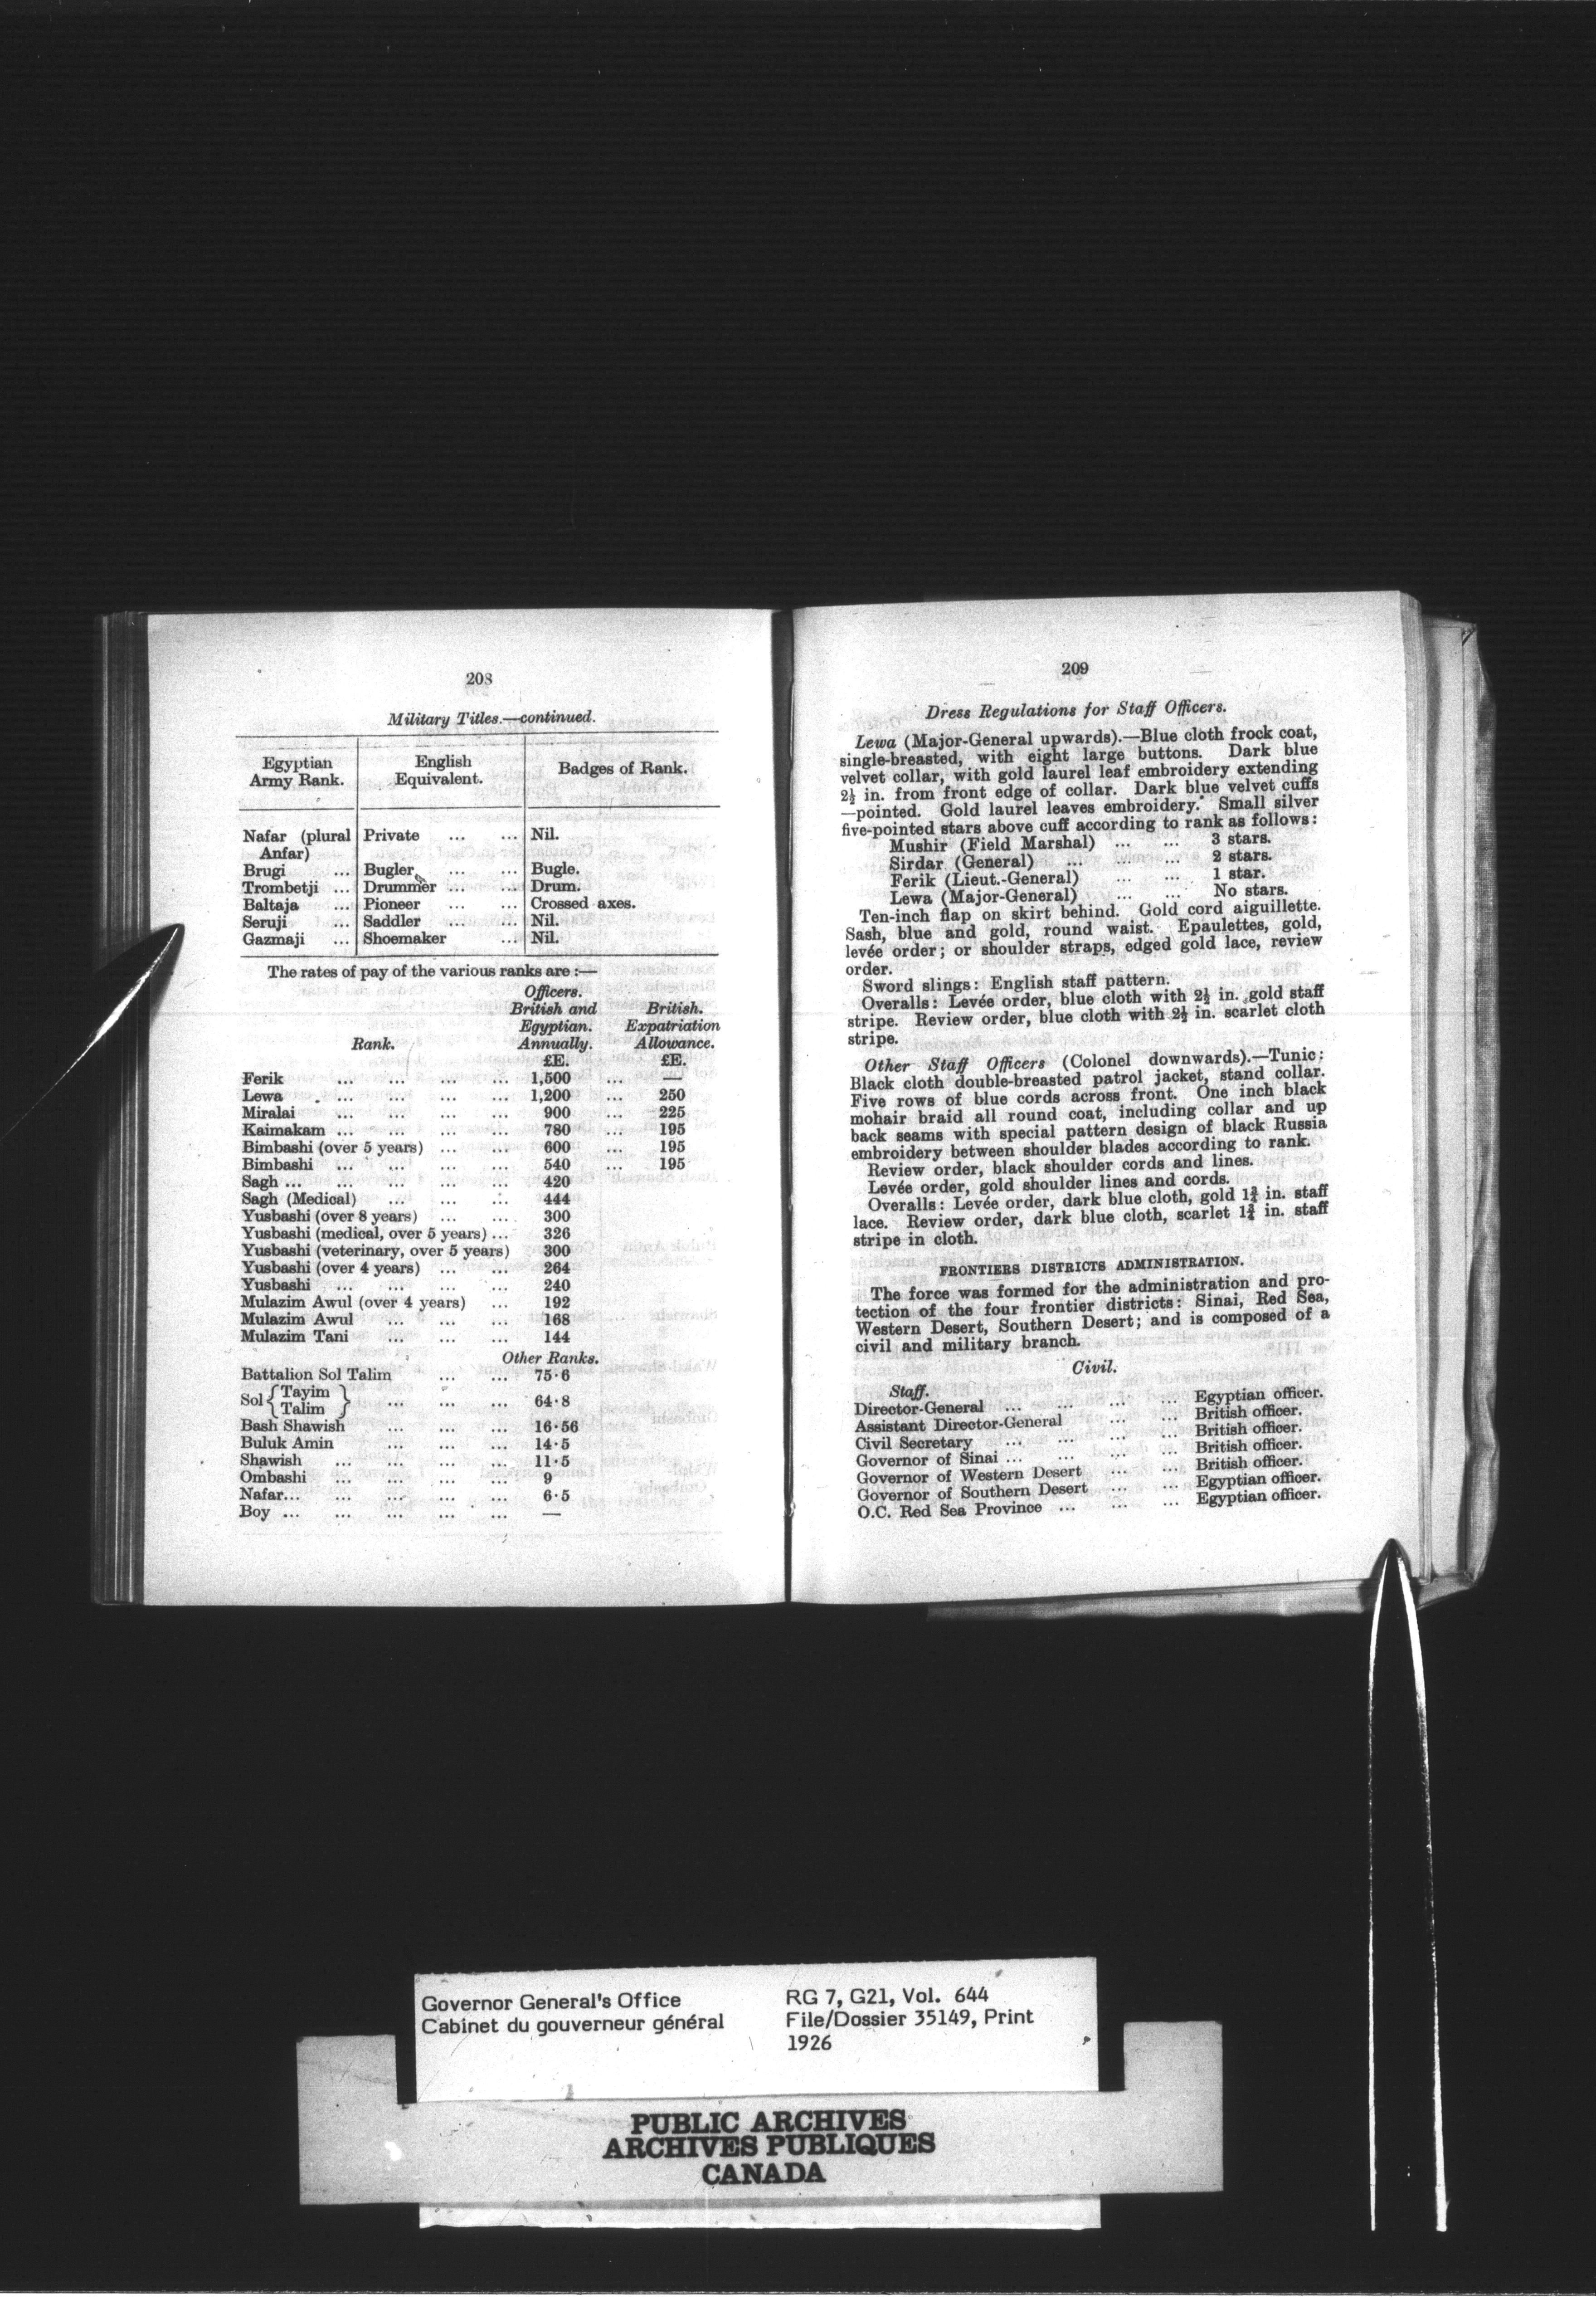 208
Military Titles.—continued.
Egyptian Army Rank. English Equivalent. Badges of Rank.
Nafar (plural Anfar) Private ... ... Nil.
Brugi ... Bugler ... ... Bugle.
Trombetji ... Drummer ... ... Drum.
Baltaja ... Pioneer ... ... Crossed axes.
Seruji ... Saddler ... ... Nil.
Gazmaji ... Shoemaker ... Nil.
The rates of pay of the various ranks are :—
Officers.
British and British.
Egyptian. Expatriation
Rank. Annually. Allowance.
£E. £E.
Ferik ... ... ... ... 1,500 ... —
Lewa ... ... ... ... 1,200 ... 250
Miralai ... ... ... ... 900 ... 225
Kaimakam ... ... ... ... 780 ... 195
Bimbashi (over 5 years) ... ... 600 ... 195
Bimbashi ... ... ... ... 540 ... 195
Sagh ... ... ... ... ... 420
Sagh (Medical) ... ... ... 444
Yusbashi (over 8 years) ... ... 300
Yusbashi (medical, over 5 years) ... 326
Yusbashi (veterinary, over 5 years) 300
Yusbashi (over 4 years) ... ... 264
Yusbashi ... ... ... ... 240
Mulazim Awul (over 4 years) ... 192
Mulazim Awul ... ... ... 168
Mulazim Tani ... ... ... 144
Other Ranks.
Battalion Sol Talim ... ... 75·6
Sol { Tayim Talim } ... ... ... 64·8
Bash Shawish ... ... ... 16·56
Buluk Amin ... ... ... 14·5
Shawish ... ... ... ... 11·5
Ombashi ... ... ... ... 9
Nafar... ... ... ... ... 6·5
Boy ... ... ... ... ... —
209
Dress Regulations for Staff Officers.
Lewa (Major-General upwards).—Blue cloth frock coat,
single-breasted, with eight large buttons. Dark blue
velvet collar, with gold laurel leaf embroidery extending
2½ in. from front edge of collar. Dark blue velvet cuffs
—pointed. Gold laurel leaves embroidery. Small silver
five-pointed stars above cuff according to rank as follows:
Mushir (Field Marshal) ... ... 3 stars.
Sirdar (General) ... ... ... 2 stars.
Ferik (Lieut.-General) ... ... 1 star.
Lewa (Major-General) ... ... No stars.
Ten-inch flap on skirt behind. Gold cord aiguillette.
Sash, blue and gold, round waist. Epaulettes, gold,
levée order; or shoulder straps, edged gold lace, review
order.
Sword slings: English staff pattern.
Overalls: Levée order, blue cloth with 2½ in. gold staff
stripe. Review order, blue cloth with 2½ in. scarlet cloth
stripe.
Other Staff Officers (Colonel downwards).—Tunic:
Black cloth double-breasted patrol jacket, stand collar.
Five rows of blue cords across front. One inch black
mohair braid all round coat, including collar and up
back seams with special pattern design of black Russia
embroidery between shoulder blades according to rank.
Review order, black shoulder cords and lines.
Levée order, gold shoulder lines and cords.
Overalls: Levée order, dark blue cloth, gold 1¾ in. staff
lace. Review order, dark blue cloth, scarlet 1¾ in. staff
stripe in cloth.
FRONTIERS DISTRICTS ADMINISTRATION.
The force was formed for the administration and pro-
tection of the four frontier districts: Sinai, Red Sea,
Western Desert, Southern Desert; and is composed of a
civil and military branch.
Civil.
Staff.
Director-General ... ... ... ... Egyptian officer.
Assistant Director-General ... ... British officer.
Civil Secretary ... ... ... ... British officer.
Governor of Sinai ... ... ... ... British officer.
Governor of Western Desert ... ... British officer.
Governor of Southern Desert ... ... Egyptian officer.
O.C. Red Sea Province ... ... ... Egyptian officer.
Governor General's Office RG 7, G21, Vol. 644
Cabinet du gouverneur général File/Dossier 35149, Print
1926
PUBLIC ARCHIVES
ARCHIVES PUBLIQUES
CANADA